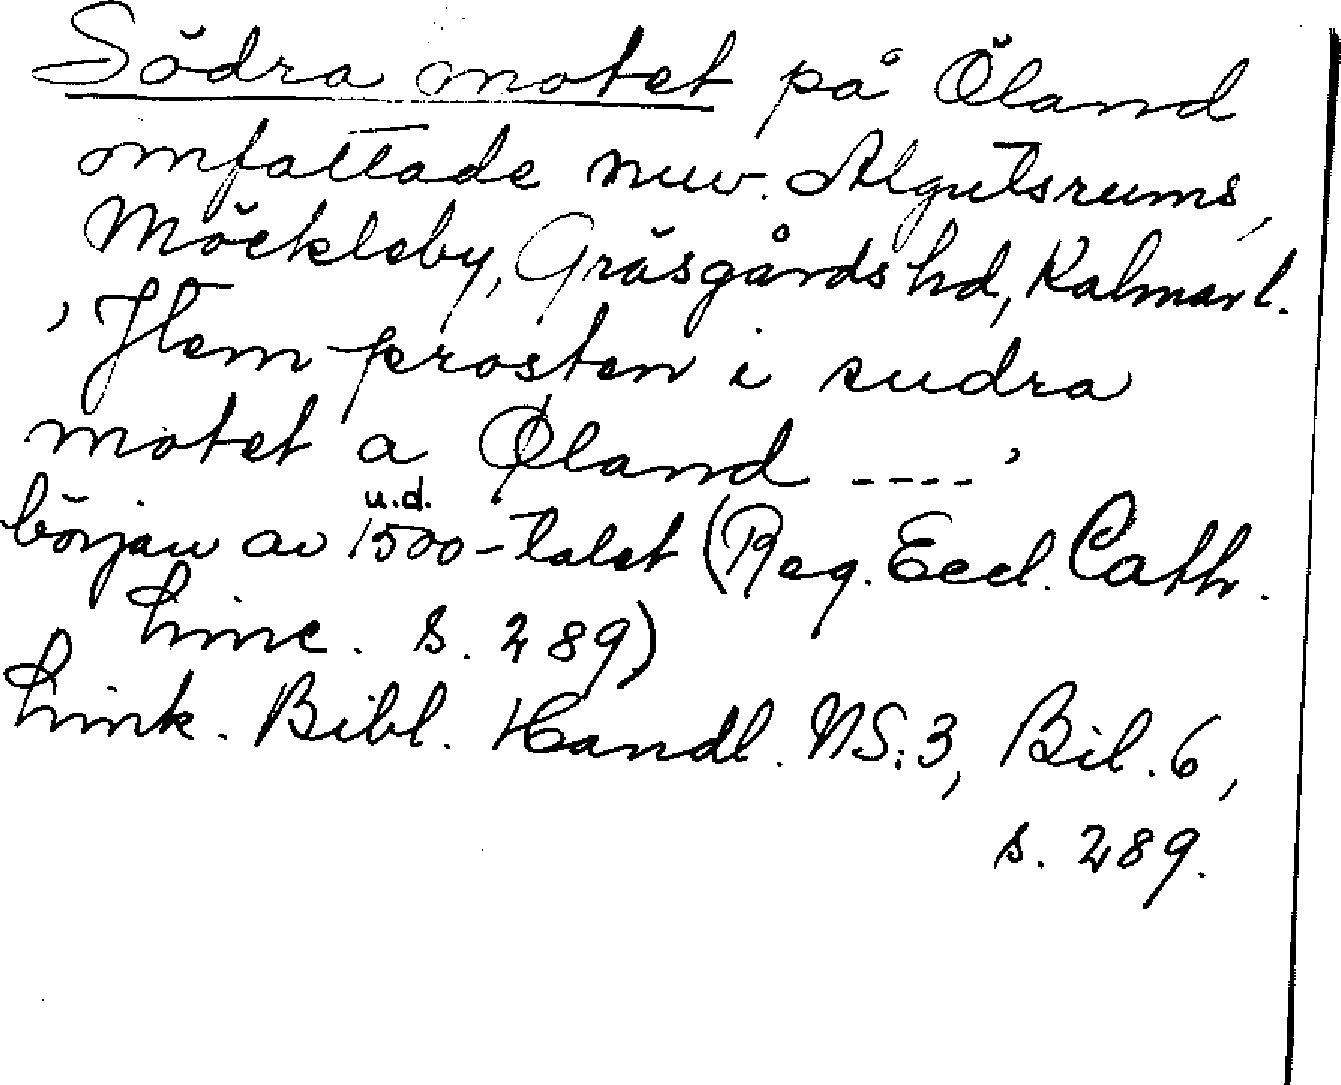 Södra motet på Öland
omfattade nuv. Algutsrums,
Möckleby, Gräsgårds hd, Kalmar l.
’Jtem prosten i sudra
motet a Øland ----’
u.d.
början av 1500-talet (Reg. Eccl. Cath.
Linc. s. 289)
Link. Bibl. Handl. NS:3, Bil. 6,
s. 289.